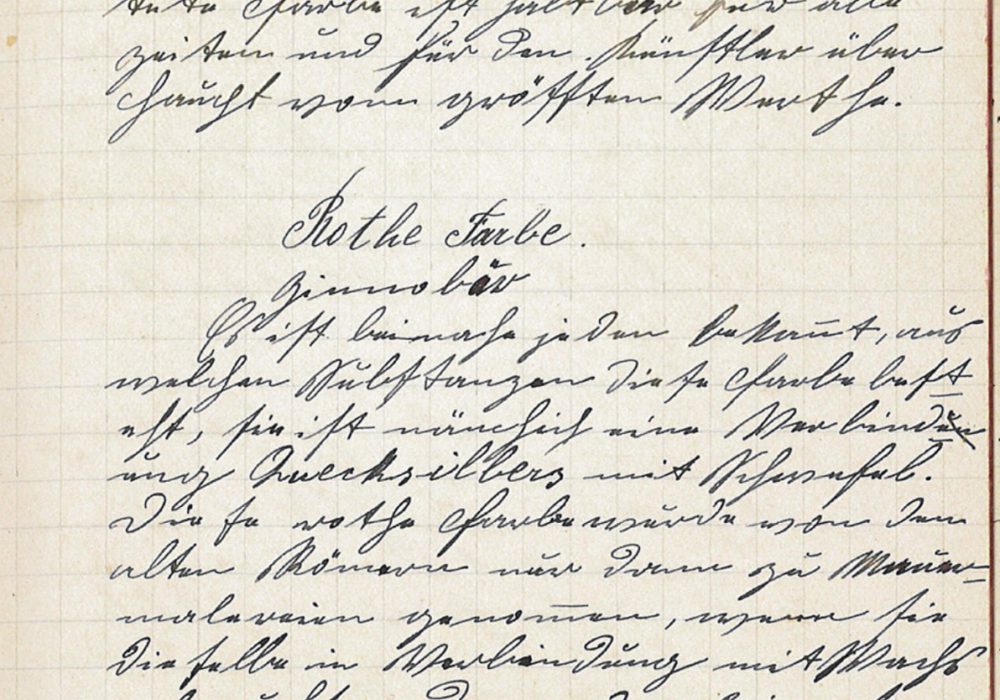 Farbe ist haltbar für alle
zeiten und für den Künstler über
haupt vom größten Werthe.
Rothe Farbe.
Zinnobär
Es ist beinahe jeden bekan̄t, aus
welchen Substanzen diese Farbe best
eht, sie ist nämlich eine Verbindun
ung Quecksilbers mit Schwefel.
Diese rothe Farbe wurde von den
alten Römern nur dann zu Mauer-
malereien genom̄en, wenn sie
dieselbe in Verbindung mit Wachs